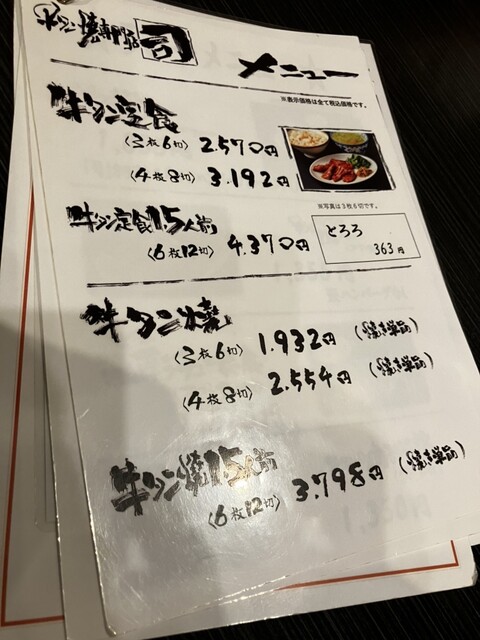 牛タン焼専門店 司
メニュー
※表示価格は全て税込価格です。
牛タン定食
(3枚6切) 2.570円
(4枚8切) 3.192円
※写真は3枚6切です。
牛タン定食1.5人前
(6枚12切) 4.370円
とろろ
363円
牛タン焼
(3枚6切) 1.932円
(4枚8切) 2.554円
牛タン焼1.5人前
(6枚12切) 3.798円